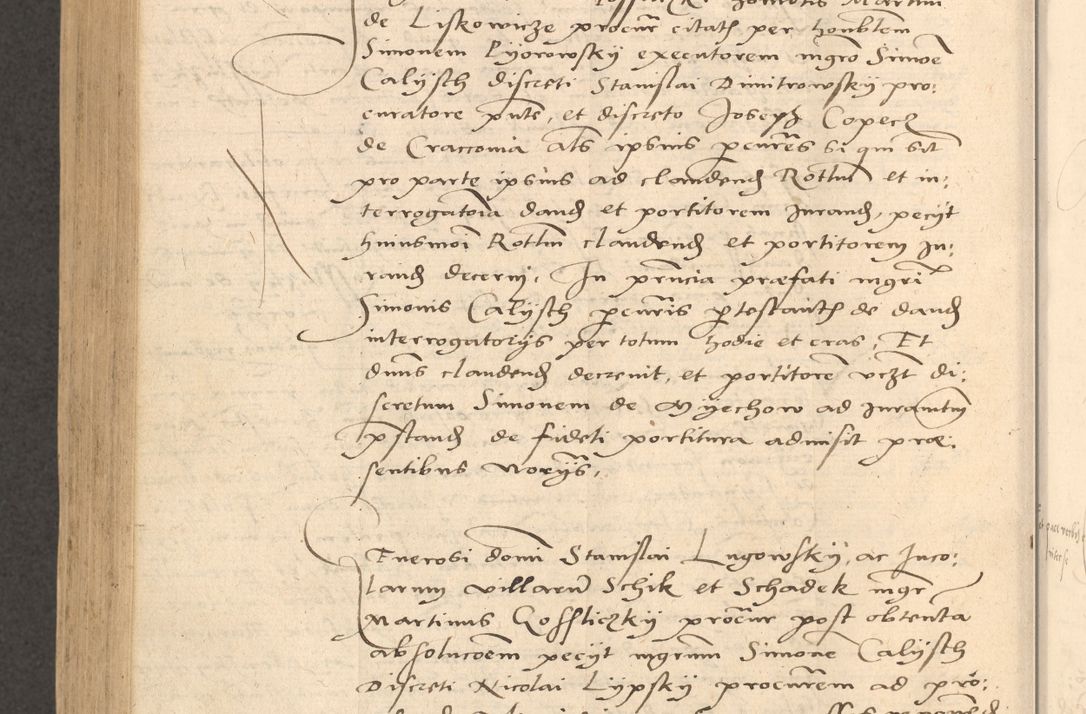 de Liskowicze procur citats per honblem
Simonem Pyorowsky executorem mgro Simoe
Calysch discreti Stanislai Dimitrowsky pro:
curatore pnte, et discreto Joseph Copecz
de Cracovia als ipsius pcures si qui sit
pro parte ipsius ad claudend Rottlm et in:
terrogatoria dand et portitorem jurand, pecyt
huiusmoi Rottlm claudend et portitorem ju:
rand decerni, In pnncia præfati mgri
Simonis Calysch pcuris ptestantis de dand
interrogatorys per totum hodie et cras, Et
dnns claudend decrevit, et portitore vczt di:
scretum Simonem de Myechow ad juramtm
pstand de fideli portitura admisit præ:
sentibus Noryis,
Generosi domi Stanislai Lugowsky, ac Inco:
larum villarum Schik et Schadek mgr
Martinus Gossliczky procur post obtenta
absolucoem pecyt mgrum Simone Calysch
Discreti Nicolai Lypsky procurem ad pro: